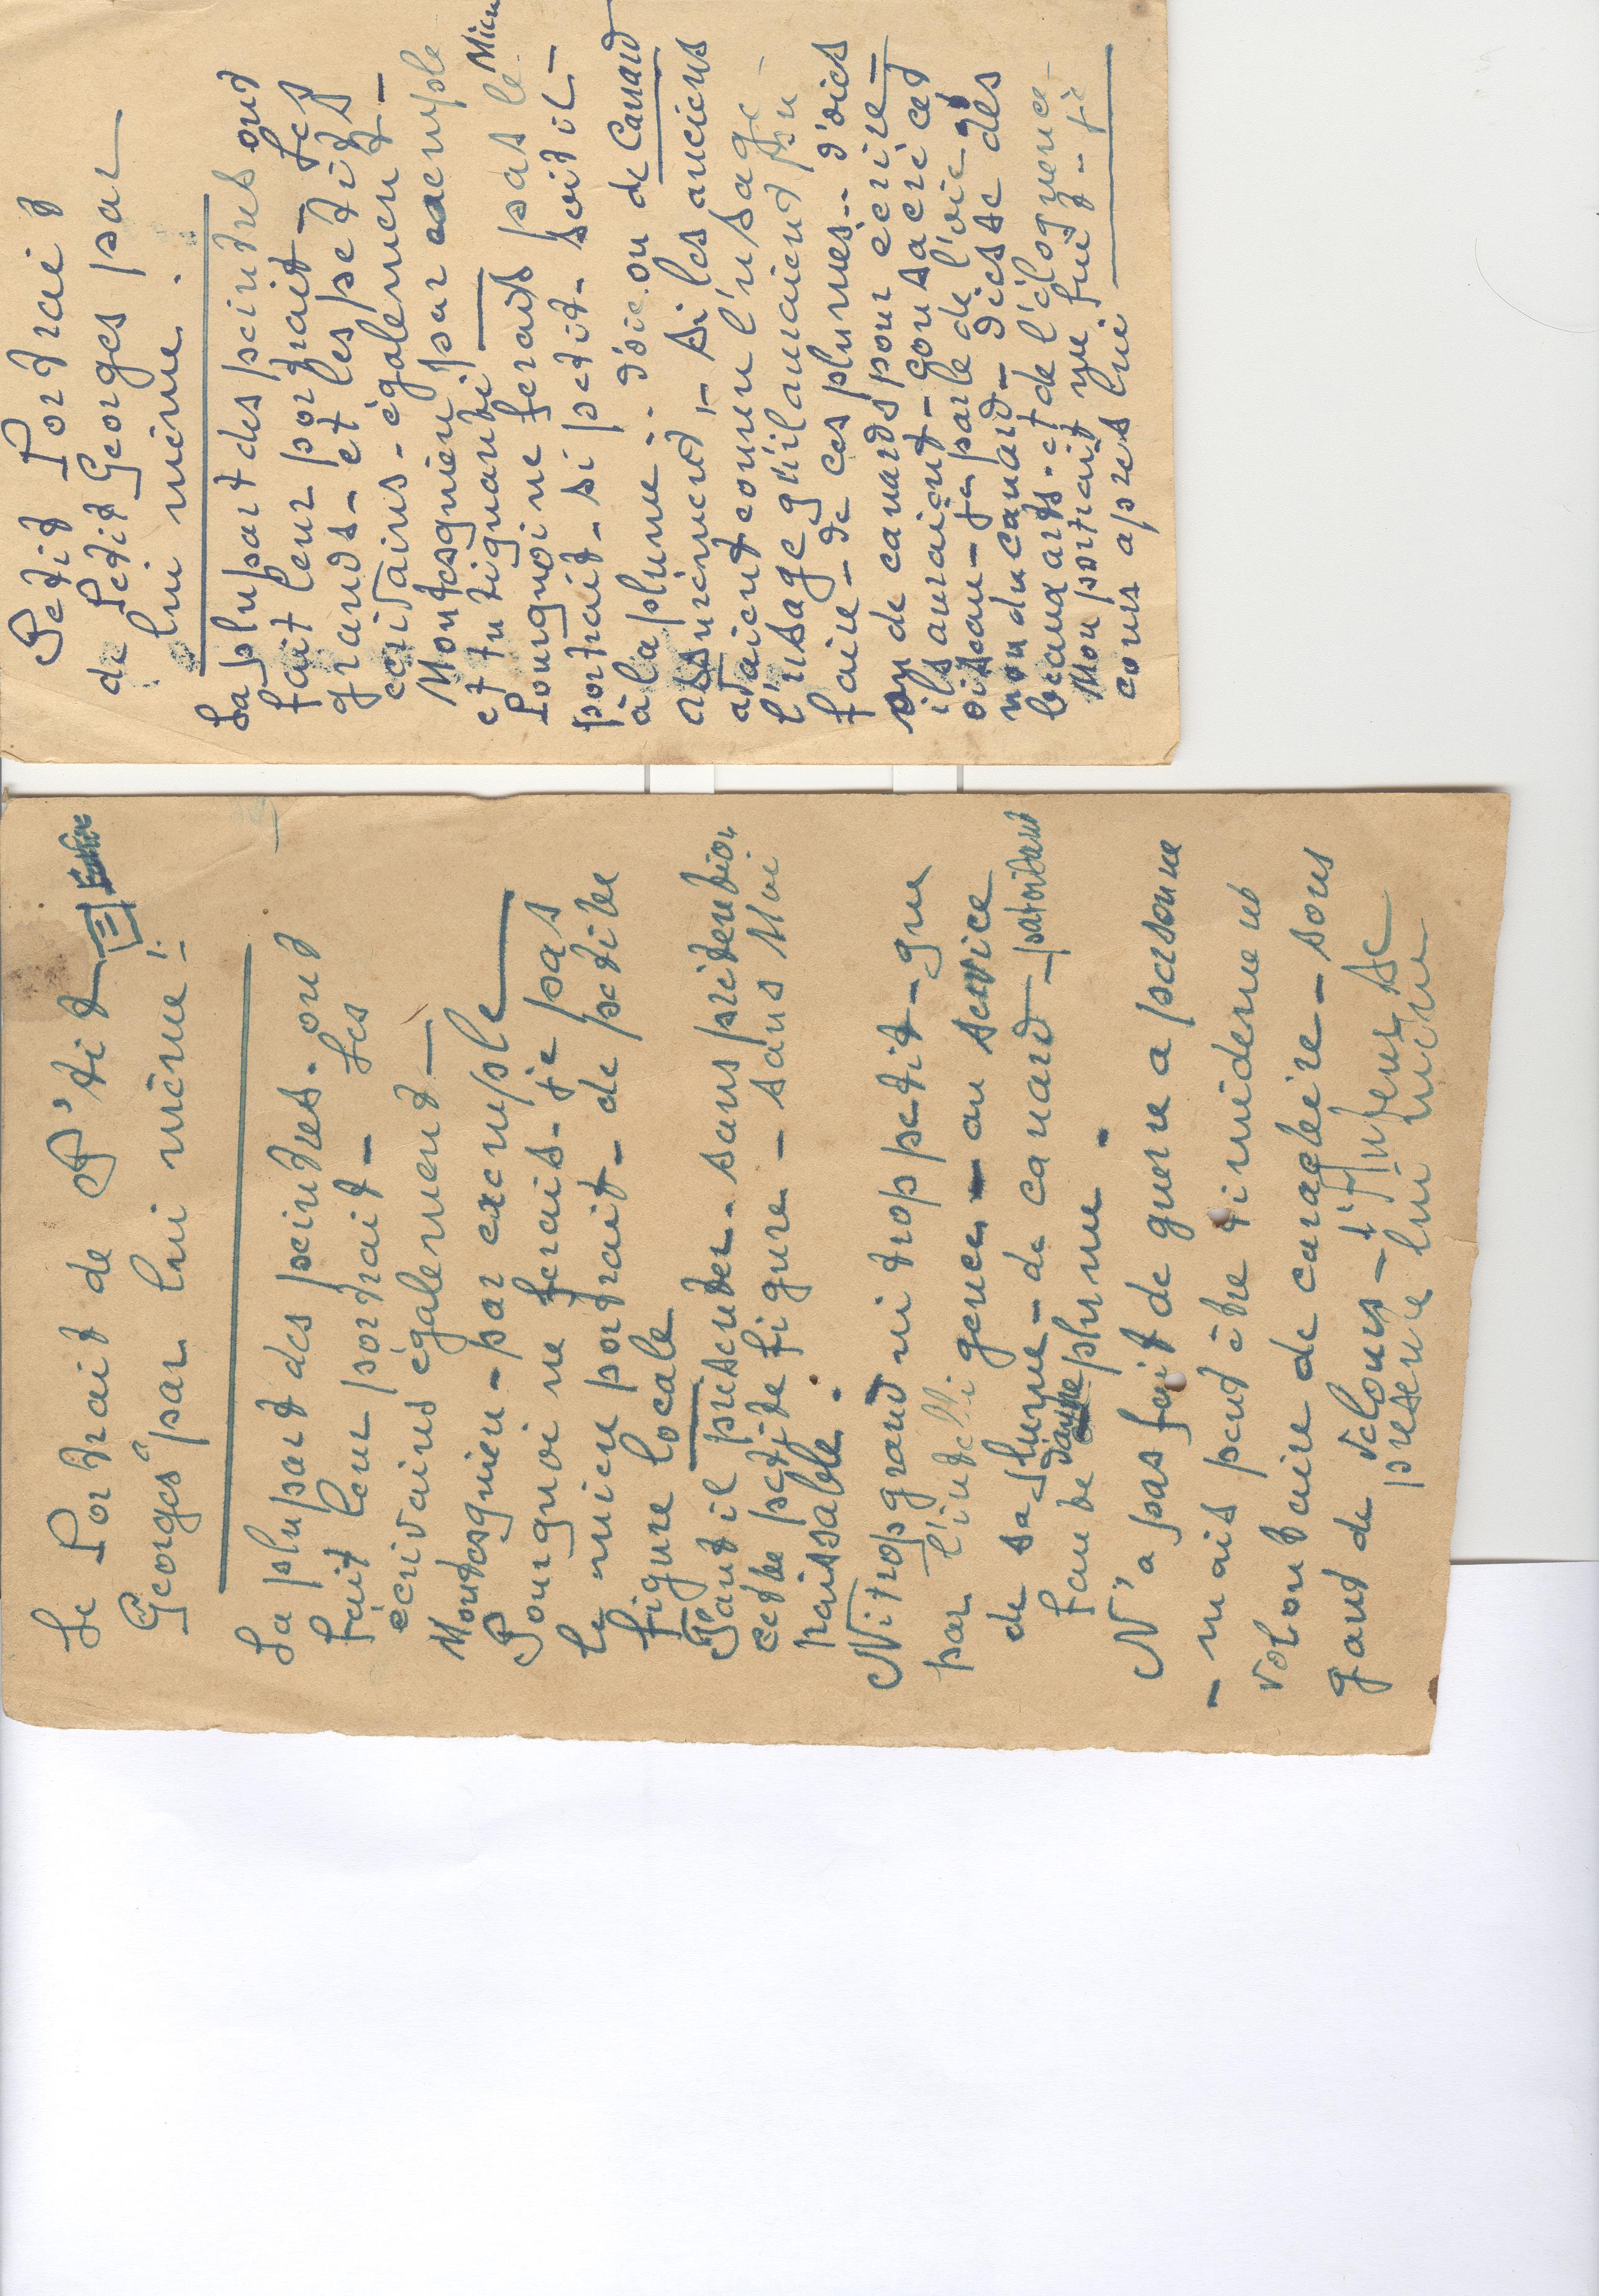 Le Portrait de P'tit
Georges" par lui même !
La plupart des peintres. ont
fait leur portrait - Les
écrivains également -
Montesquieu - par exemple
Pourquoi ne ferais-je pas
le mien portrait - de petite
figure locale
Tant il presenter - sans prétention
cette petite figure - sans Moi
haissable.
Ni trop grand ni trop petit - que
par l'intelligence - au service
de sa plume - de canard - patoisant
faute d'autre plume.
N'a pas fait de guerre a personne
- mais peut être timidement
volontaire de caractère - sous
gant de velours - t'Auteur se
présente lui même
Petit Portrait
de Petit Georges par
lui même.
La plupart des peintres ont
fait leur portrait - Les
grands - et les petits
écrivains - également -
Montesquieu par exemple
et tutiquanti
Pourquoi ne ferais pas le Mien
portrait - si petit - soit il -
à la plume : d'oie. ou de Canard
assurément, - si les anciens
avaient connu l'usage
l'usage qu'il auraient pu
faire - de ces plumes .. d'oies
ou de canards pour écrire -
ils auraient - consacré cet
oiseau - je parle de l'oie et
non du canard - dieſse des
beaux arts. et de l'éloquence -
Mon portrait que fuit .. fè
cours apres lui